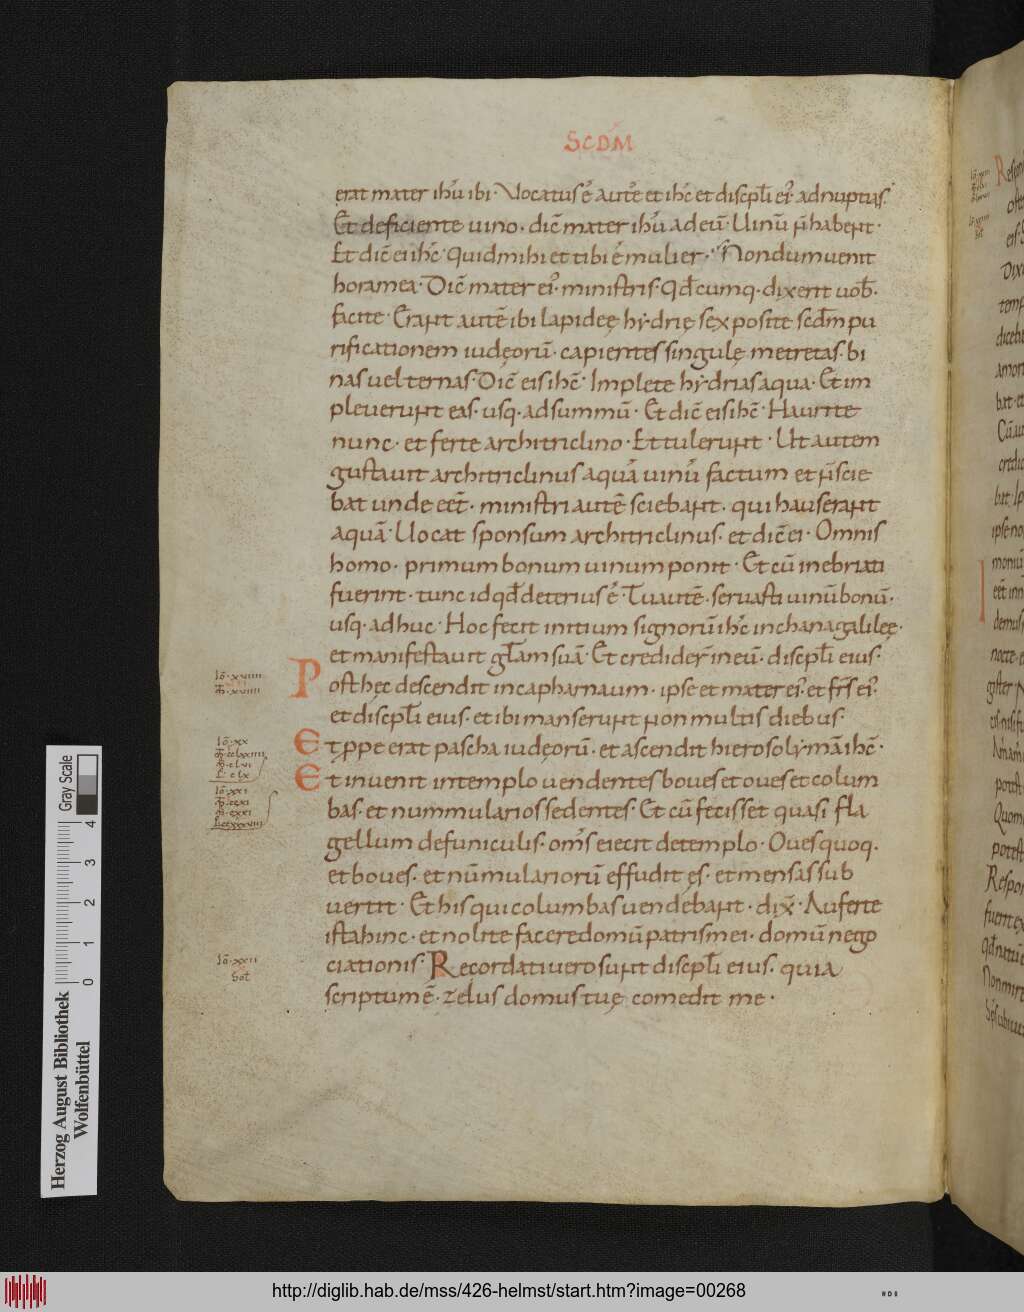 SCDM̄
erat mater ihū ibi· Vocatus ē autē et ihc̄ et discipl̄i ei᷒ ad nuptias·
Et deficiente uino· dic̄ mater ihū ad eū· Uinū n̄ habent·
Et dic̄ ei ihc̄· Quid mihi et tibi ē mulier· Nondum uenit
hora mea· Dic̄ mater ei᷒· ministris· Qd̄cumq· dixerit uob̄·
facite· Erant autē ibi lapideę hẏdrię sex posite scd̄m pu
rificationem iudęorū· capientes singulę metretas· bi
nas uel ternas· Dic̄ eis ihc̄· Implete hẏdrias aqua· Et im
pleuerunt eas· usq· ad summū· Et dic̄ eis ihc̄· Haurite
nunc· et ferte architriclino· Et tulerunt· Ut autem
gustauit architriclinus aquā uinū factum et n̄ scie
bat unde eēt· ministri autē sciebant· qui hauserant
aquā· Uocat sponsum architriclinus· et dic̄ ei· Omnis
homo· primum bonum uinum ponit· Et cū inebriati
fuerint· tunc id qd̄ deterius ē· Tu autē· seruasti uinū bonū·
usq· adhuc· Hoc fecit initium signorū ihc̄ in chana galileę·
et manifestauit gl̄am suā· Et crediderī in eū· discipl̄i eius·
Iō· xviiii
P ost hęc descendit in capharnaum· ipse et mater ei᷒· et fr̄s ei᷒·
et discipl̄i eius· et ibi manserunt non multis diebus·
Iō· xx
E t ꝓpe erat pascha iudęorū· et ascendit hierosolẏmā ihc̄·
E t inuenit in templo uendentes boues et oues et colum
Iō· xxi
bas· et nummularios sedentes· Et cū fecisset quasi fla
gellum de funiculis· om̄s eiecit de templo· Oues quoq·
et boues· et nūmulariorū effudit ęs· et mensas sub
uertit· Et his qui columbas uendebant· dix̄· Auferte
ista hinc· et nolite facere domū patris mei· domū nego
Iō· xxii
Sol
ciationis· Recordati uero sunt discipl̄i eius· quia
scriptum ē· zelus domus tuę comedit me·
Herzog August Bibliothek
Wolfenbüttel
0 1 2 3 4
Gray Scale
http://diglib.hab.de/mss/426-helmst/start.htm?image=00268